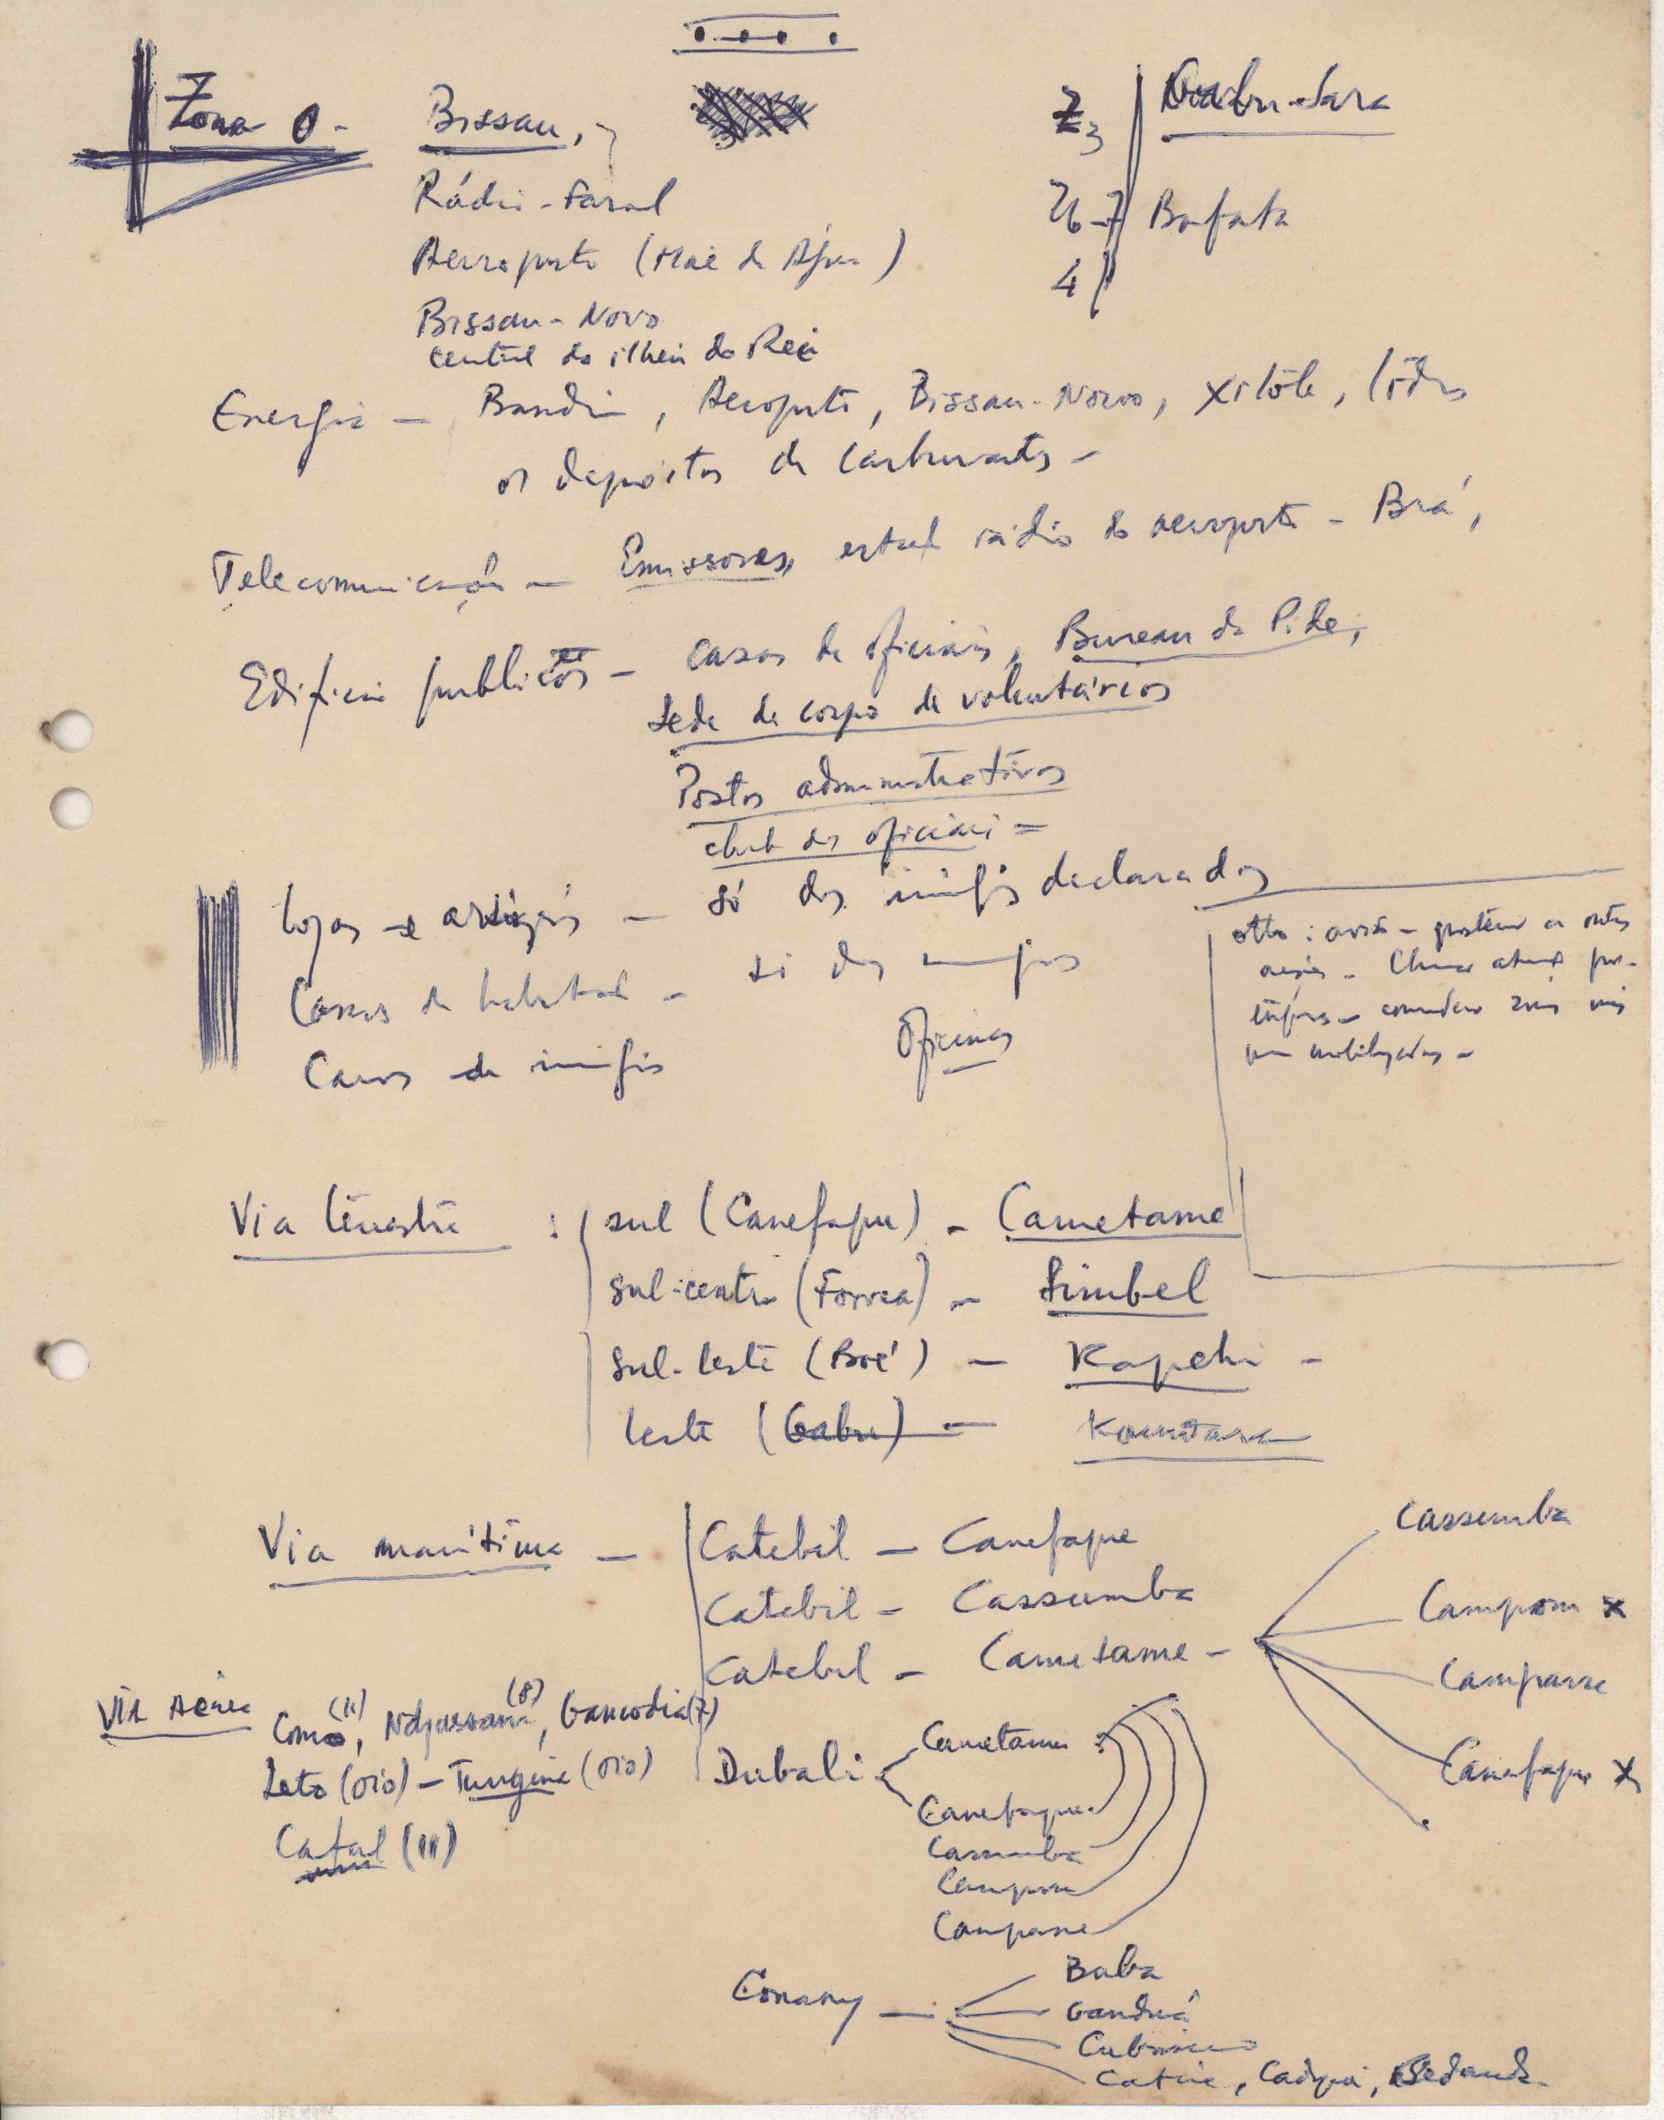 Zona 0 - Bissau,
Rádio-Farol
Aeroporto (Mãe de Água)
Bissau-Novo
central do ilheu do Rei
Z3
Z6-7 Bafata
4
Energia - Bandim, Aeroporto, Bissau-Novo, Xitole, todos
os depósitos de carburantes -
Telecomunicação - Emissores, rádio do aeroporto - Brá,
Edifícios publicos - casas de oficiais, Bureau da Pide,
Sede de corpo de voluntários
Postos administrativos
club dos oficiais =
Lojas e - só dos inimigos declarados
Casas de habitação - só dos inimigos
Carros de inimigos Oficinas
otto: avião -
mobilizadas -
Via terrestre : sul (Canefaque) - Cametame
sul-centro (Forrea) - Simbel
sul-leste (Boé) - Kapchi -
leste (Gabu) - Kountara
Via marítima - Catebil - Canefaque
Catebil - Cassumba
Catebil - Cametame -
Cassumba
Campom x
Campane
Canefaque x
Via Aérea Como (11), Ndjassani (8), Gancodia (7)
Leto (Oio) - Tungine (Oio)
Cafal (11)
Dubali Cametame
Canefaque
Cassumba
Campom
Campane
Conakry - Baba
Ganduá
Catine, Cadique, Bedanda